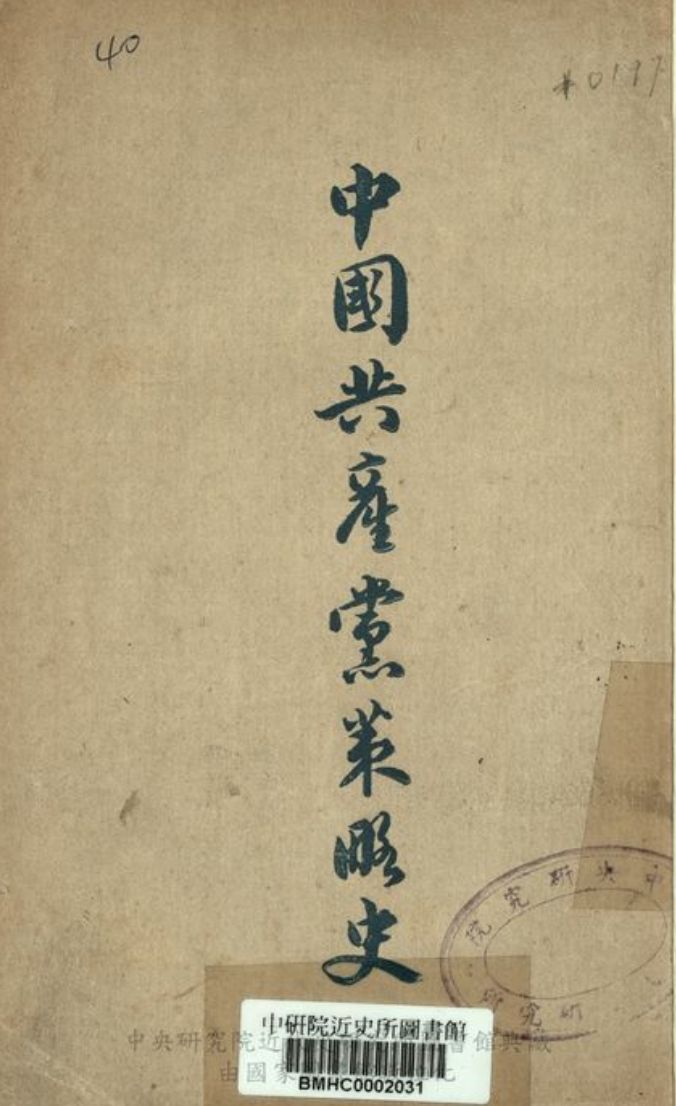 40
#0197
中國共產黨策略史
中央研究院
中研院近史所圖書館
BMHC0002031
中央研究院近 書館典藏
由國家 化